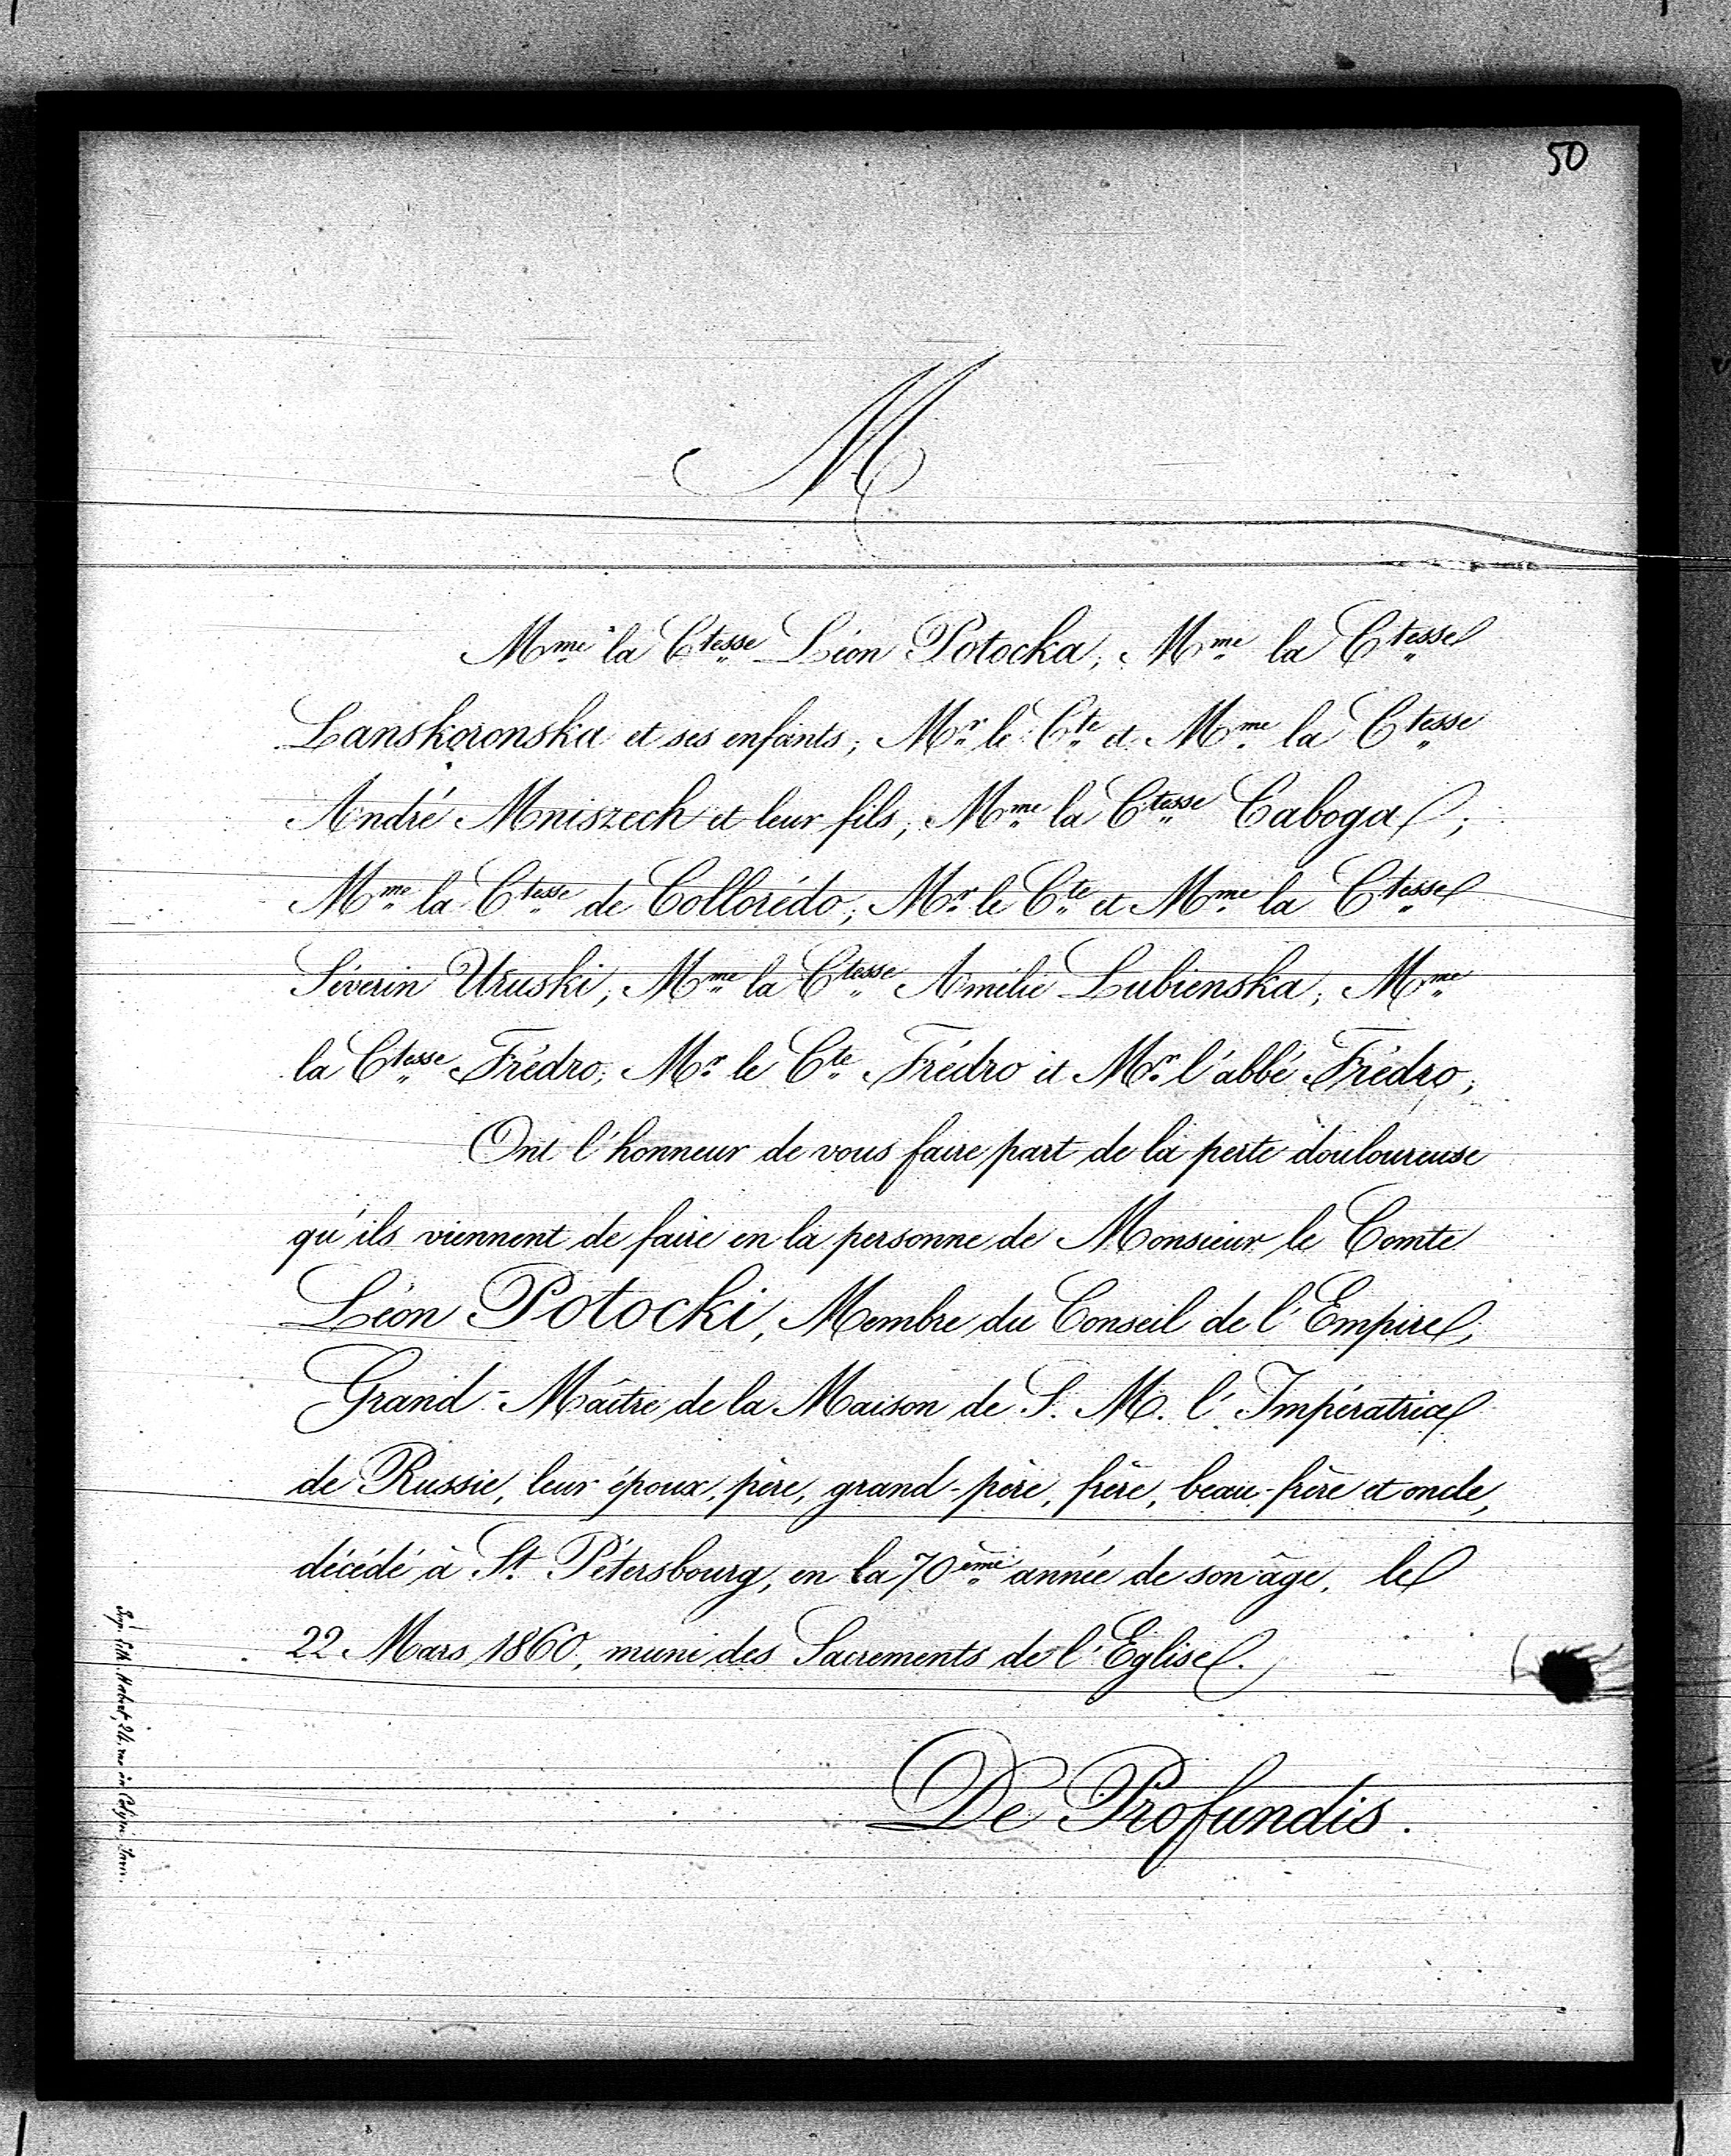 50
M
Mme la Ctesse Léon Potocka, Mme la Ctesse
Lanskoronska et ses enfants, Mr le Cte et Mme la Ctesse
André Mniszech et leur fils, Mme la Ctesse Caboga,
Mme la Ctesse de Collorédo, Mr le Cte et Mme la Ctesse
Séverin Uruski, Mme la Ctesse Amélie Lubienska, Mme
la Ctesse Frédro, Mr le Cte Frédro et Mr l'abbé Frédro,
Ont l'honneur de vous faire part de la perte douloureuse
qu'ils viennent de faire en la personne de Monsieur le Comte
Léon Potocki, Membre du Conseil de l'Empire,
Grand-Maître de la Maison de S. M. l'Impératrice
de Russie, leur époux, père, grand-père, frère, beau-frère et oncle,
décédé à St Pétersbourg, en la 70ème année de son âge, le
22 Mars 1860, muni des Sacrements de l'Eglise.
De Profundis.
Imp. Lith. 24, rue Paris.